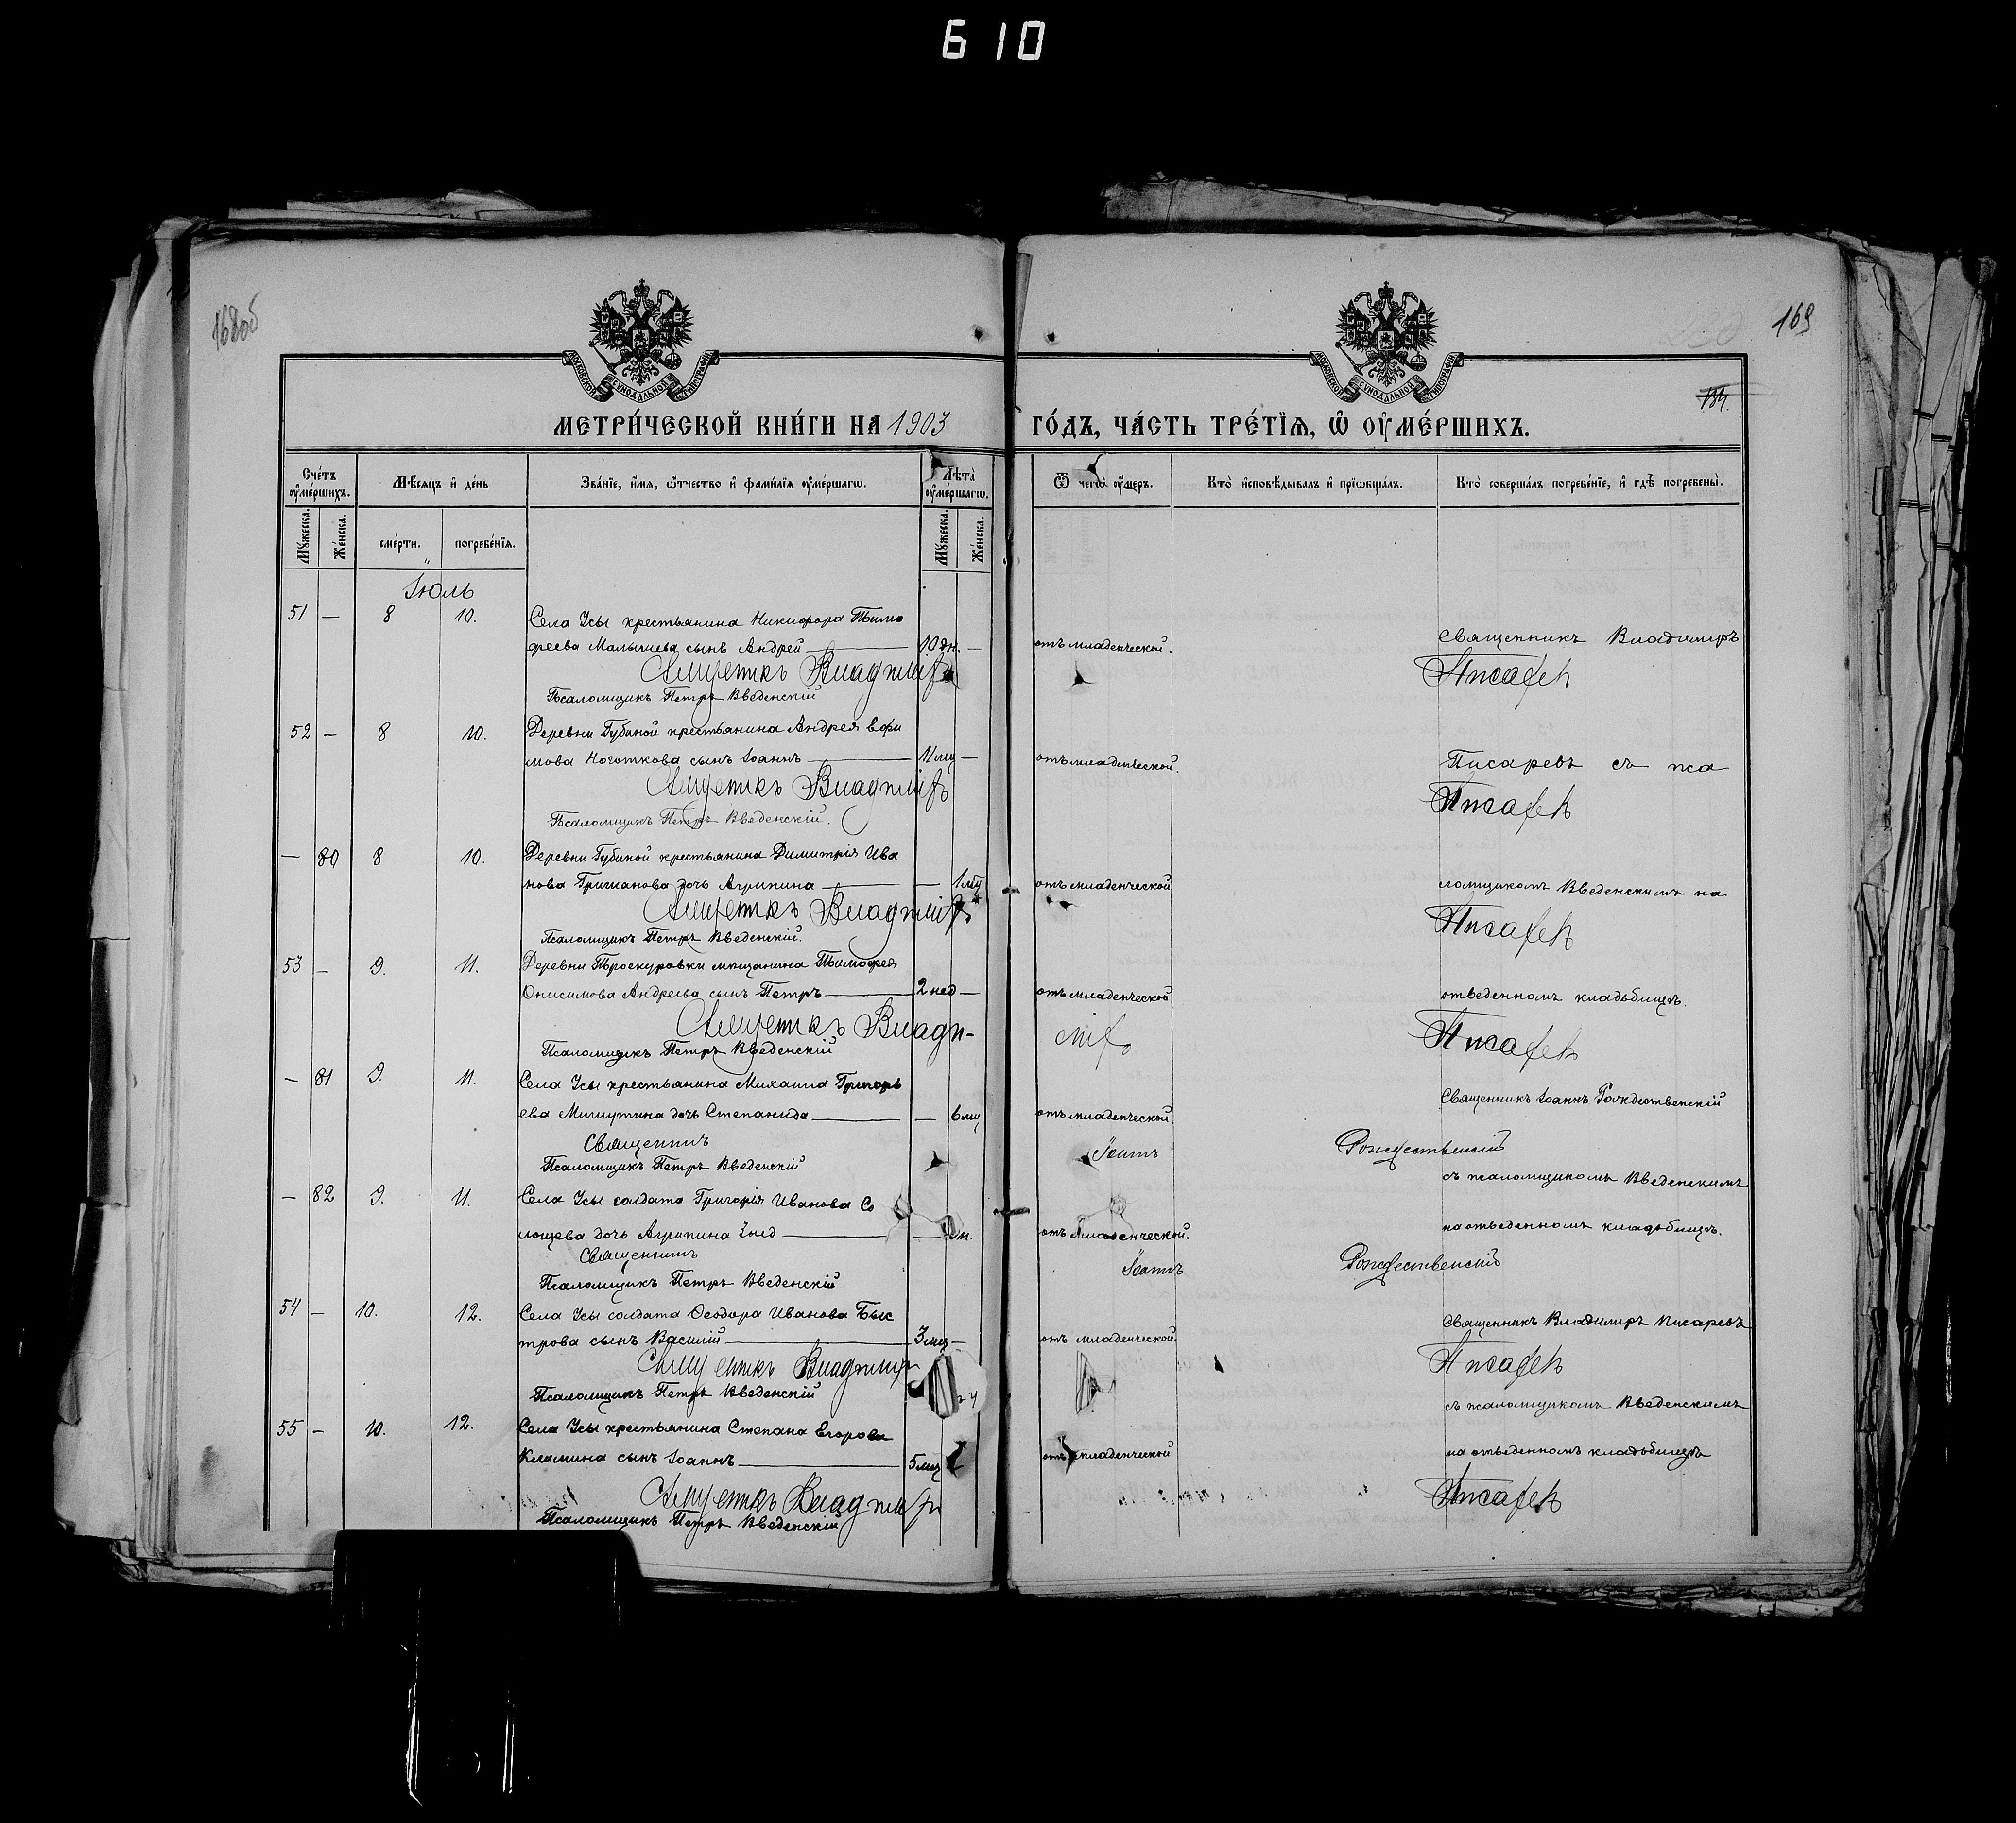 610
168об
169
134.
МОСКОВСКОЙ СѴНОДАЛЬНОЙ ТИПОГРАФІИ
МОСКОВСКОЙ СѴНОДАЛЬНОЙ ТИПОГРАФІИ
МЕТРИ́ЧЕСКОЙ КНИ́ГИ НА 1903 ГО́ДЪ, ЧА́СТЬ ТРЕ́ТІѦ, Ѽ ОУ҆МЕ́РШИХЪ.
Сче́тъ оу҆ме́ршихъ.
Мѣ́сяцъ и҆ де́нь
Зва́нїе, и҆́мѧ, ѻ҆́тчество и҆ фами́лїѧ оу҆ме́ршагѡ.
Лѣта̀ оу҆ме́ршагѡ.
Ѿ чегѡ̀ оу҆́меръ.
Кто̀ и҆сповѣ́дывалъ и҆ прїѡбща́лъ.
Кто̀ соверша́лъ погребе́нїе, и҆ гдѣ̀ погребены̀.
Мꙋ́жеска. Же́нска. сме́рти. погребе́нїѧ. Мꙋ́жеска. Же́нска.
Іюль
51 — 8 10. Села Усы крестьянина Никифора Тимо
феева Малышева сынъ Андрей — 10 дн. — отъ младенческой. Священникъ Владимиръ
Священникъ Владимiръ Писаревъ
Псаломщикъ Петръ Введенскій
52 — 8 10. Деревни Губиной крестьянина Андрея Ефи
мова Ноготкова сынъ Іоаннъ — 11 мц — отъ младенческой. Писаревъ съ пса
Священникъ Владимiръ Писаревъ
Псаломщикъ Петръ Введенскій.
— 80 8 10. Деревни Губиной крестьянина Димитрія Ива
нова Гришанова дочь Агрипина — — 1 мц отъ младенческой ломщикомъ Введенскимъ на
Священникъ Владимiръ Писаревъ
Псаломщикъ Петръ Введенскій.
53 — 9. 11. Деревни Проскуровки мещанина Тимофея
Онисимова Андреева сынъ Петръ — 2 нед — отъ младенческой отведенномъ кладбищѣ.
Священникъ Владимiръ Писаревъ
Псаломщикъ Петръ Введенскій
— 81 9. 11. Села Усы крестьянина Михаила Григорь
ева Мишутина дочь Степанида — — 6 мц отъ младенческой. Священникъ Іоаннъ Рождественскій
Священникъ Іоаннъ Рождественскій
Псаломщикъ Петръ Введенскій съ псаломщикомъ Введенскимъ
— 82 9. 11. Села Усы солдата Григорія Иванова Со
лощева дочь Агрипина — — отъ младенческой. на отведенномъ кладбищѣ.
Священникъ Іоаннъ Рождественскій
Псаломщикъ Петръ Введенскій
54 — 10. 12. Села Усы солдата Ѳеодора Иванова Быс
трова сынъ Василій — 3 мц — отъ младенческой. Священникъ Владимиръ Писаревъ
Священникъ Владимiръ Писаревъ
Псаломщикъ Петръ Введенскій съ псаломщикомъ Введенскимъ
55 — 10. 12. Села Усы крестьянина Степана Егорова
Климина сынъ Іоаннъ — 5 мц отъ младенческой на отведенномъ кладбищѣ
Священникъ Владимiръ Писаревъ
Псаломщикъ Петръ Введенскій